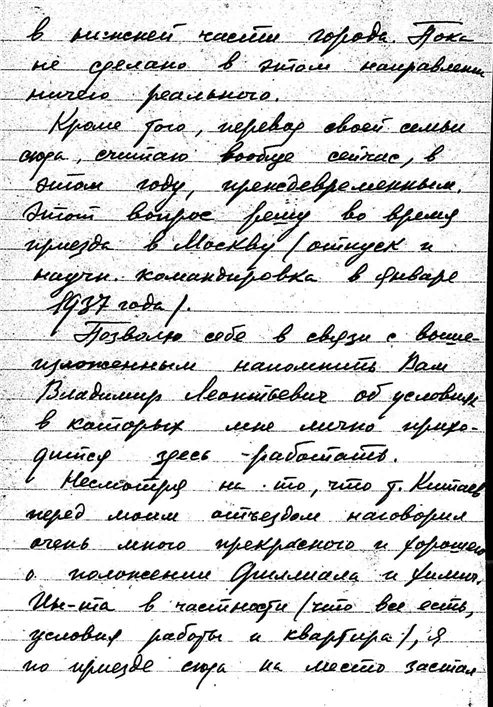 в нижней части города. Пока
не сделано в этом направлении
ничего реального.
Кроме того, перевод своей семьи
сюда, считаю вообще сейчас, в
этом году, преждевременным.
Этот вопрос решу во время
приезда в Москву (отпуск и
научн. командировка в январе
1937 года).
Позволю себе в связи с выше-
изложенным напомнить Вам
Владимир Леонтьевич об условиях
в которых мне лично прихо-
дится здесь работать.
Несмотря на то, что т. Китаев
перед моим отъездом наговорил
очень много прекрасного и хорошего
о положении Филлиала и Химич.
Ин-та в частности (что все есть,
условия работы и квартира), я
по приезде сюда на место застал